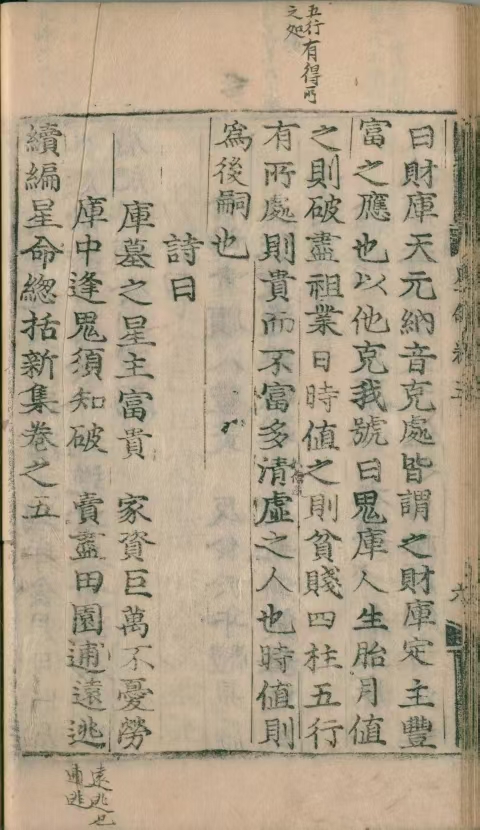 五行有得所
之処
曰財庫天元納音克處皆謂之財庫定主豐
富之應也以他克我號曰鬼庫人生胎月値
之則破盡祖業日時値之則貧賤四柱五行
有所處則貴而不富多清虛之人也時値則
爲後嗣也
詩曰
庫墓之星主富貴 家資巨萬不憂勞
庫中逢鬼須知破 賣盡田園逋遠逃
續編星命緫括新集卷之五
六
遠逃也
逋逃